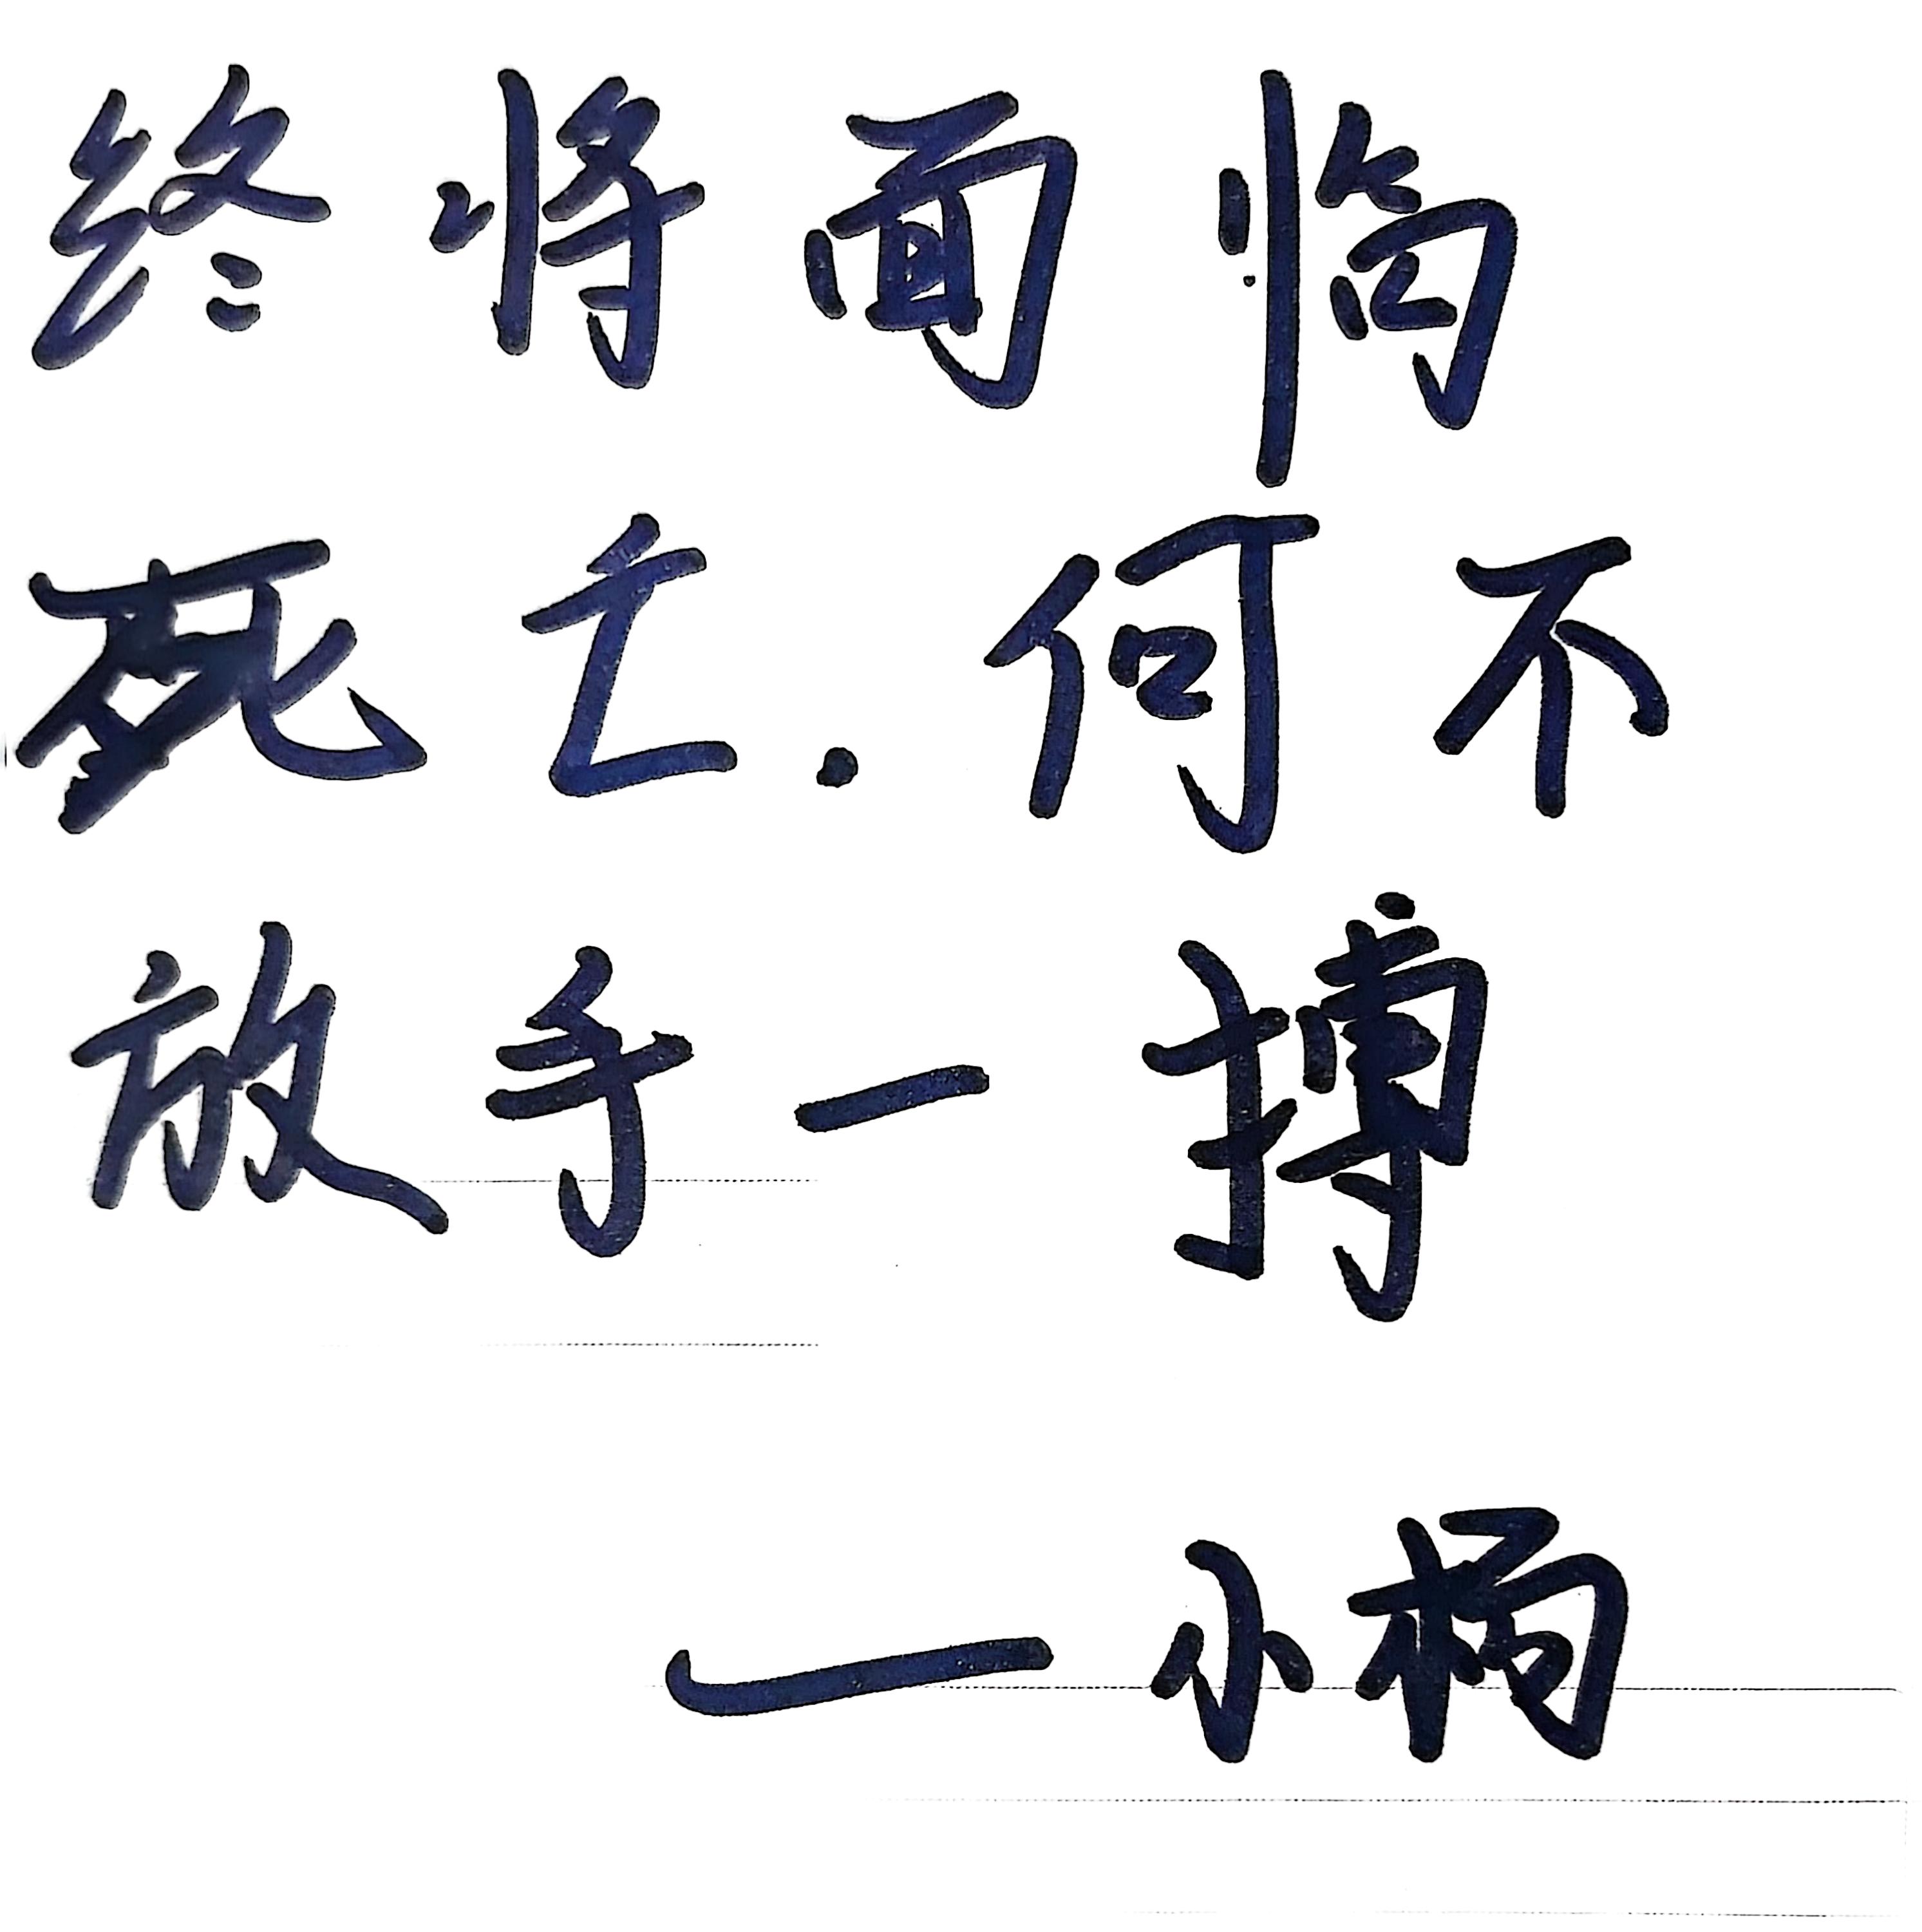 终将面临
死亡.何不
放手一搏
—小柄